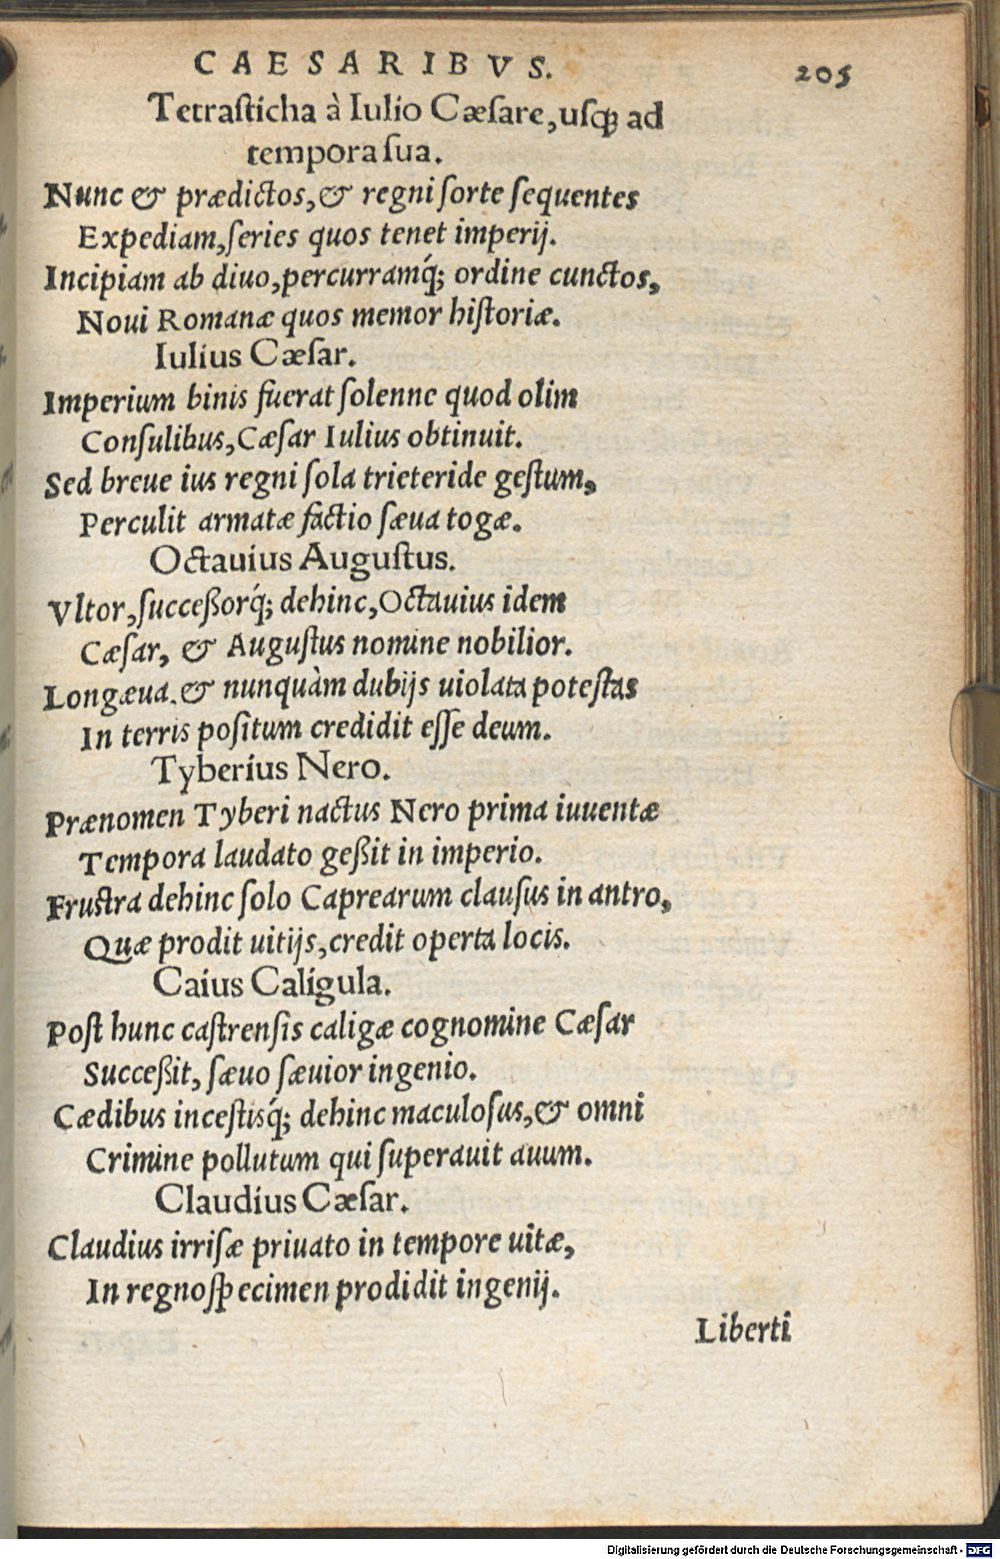 CAESARIBVS. 205
Tetraſticha à Iulio Cæſare, uſq; ad
tempora ſua.
Nunc & prædictos, & regni ſorte ſequentes
Expediam, ſeries quos tenet imperij.
Incipiam ab diuo, percurramq́; ordine cunctos,
Noui Romanæ quos memor hiſtoriæ.
Iulius Cæſar.
Imperium binis fuerat ſolenne quod olim
Conſulibus, Cæſar Iulius obtinuit.
Sed breue ius regni ſola trieteride geſtum,
Perculit armatæ factio ſæua togæ.
Octauius Auguſtus.
Vltor, ſucceßorq́; dehinc, Octauius idem
Cæſar, & Auguſtus nomine nobilior.
Longæua. & nunquàm dubijs uiolata poteſtas
In terris poſitum credidit eſſe deum.
Tyberius Nero.
Prænomen Tyberi nactus Nero prima iuuentæ
Tempora laudato geßit in imperio.
Fruſtra dehinc ſolo Caprearum clauſus in antro,
Quæ prodit uitijs, credit operta locis.
Caius Caligula.
Poſt hunc caſtrenſis caligæ cognomine Cæſar
Succeßit, ſæuo ſæuior ingenio.
Cædibus inceſtisq́; dehinc maculoſus, & omni
Crimine pollutum qui ſuperauit auum.
Claudius Cæſar.
Claudius irriſæ priuato in tempore uitæ,
In regno ſpecimen prodidit ingenij.
Liberti
Digitalisierung gefördert durch die Deutsche Forschungsgemeinschaft - DFG